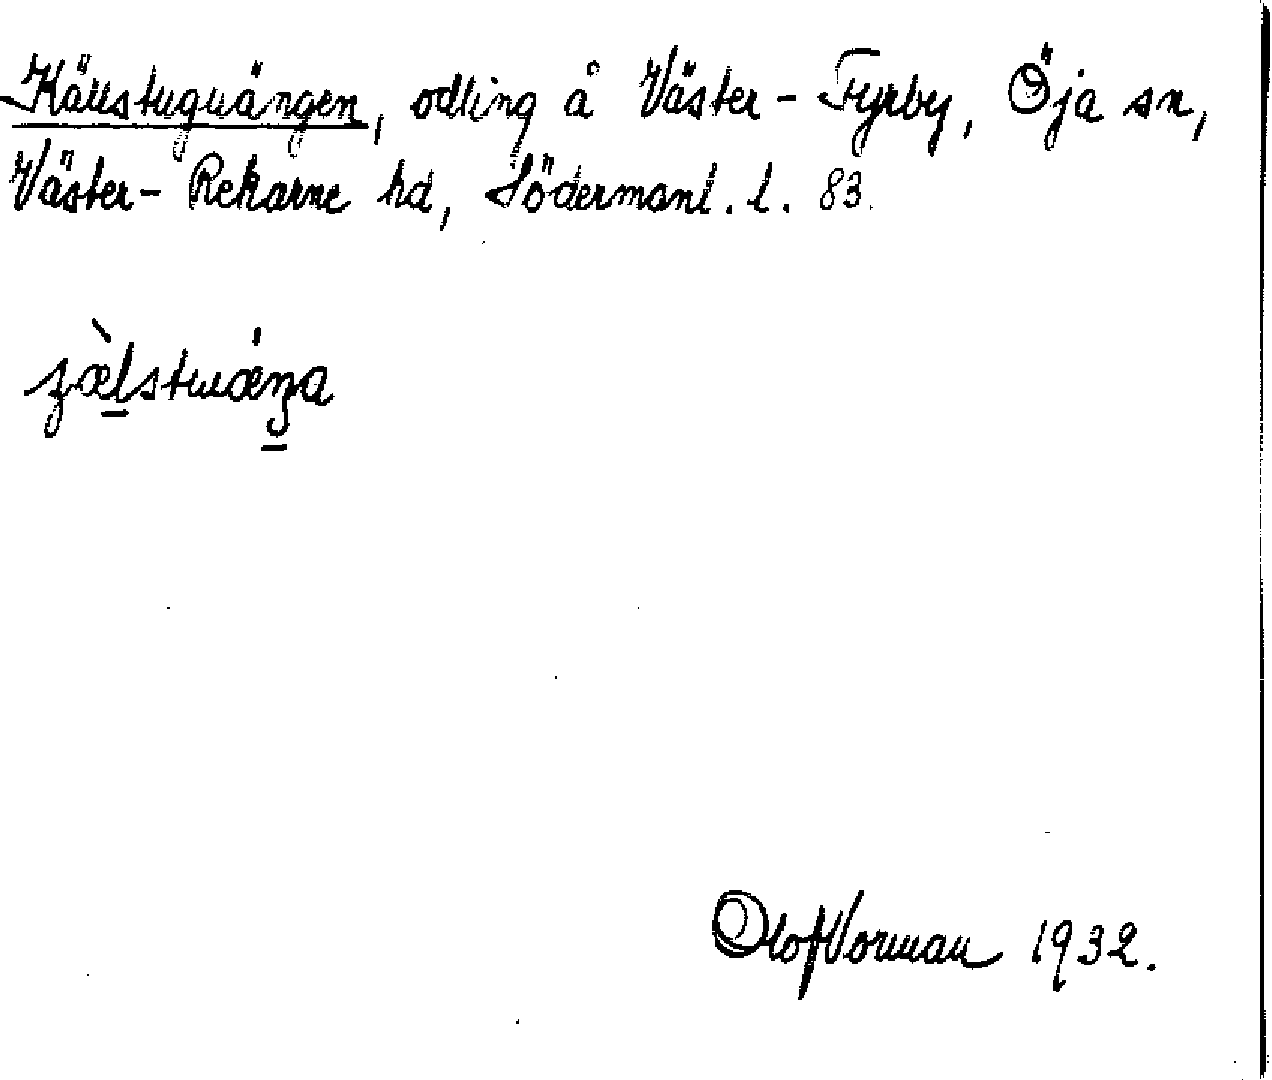 Källstuguängen, odling å Väster-Fyrby, Öja sn,
Väster-Rekarne hd, Södermanl. l. 83.
Olof Vorman 1932.